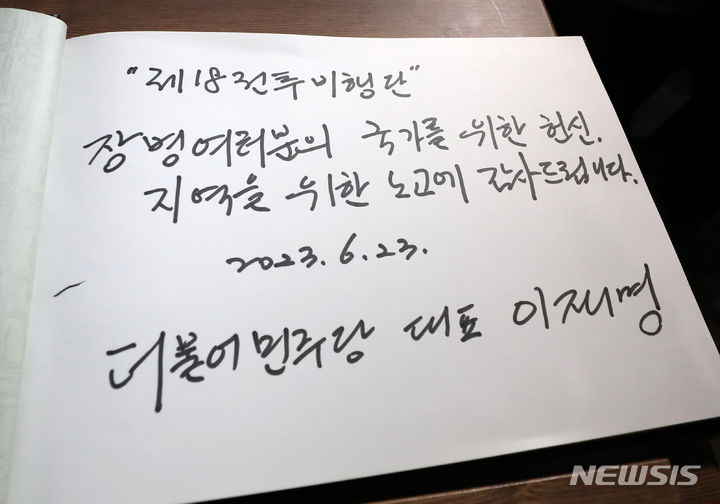 "제18전투비행단"
장병여러분의 국가를 위한 헌신.
지역을 위한 노고에 감사드립니다.
2023. 6. 23.
더불어민주당 대표 이재명
NEWSIS